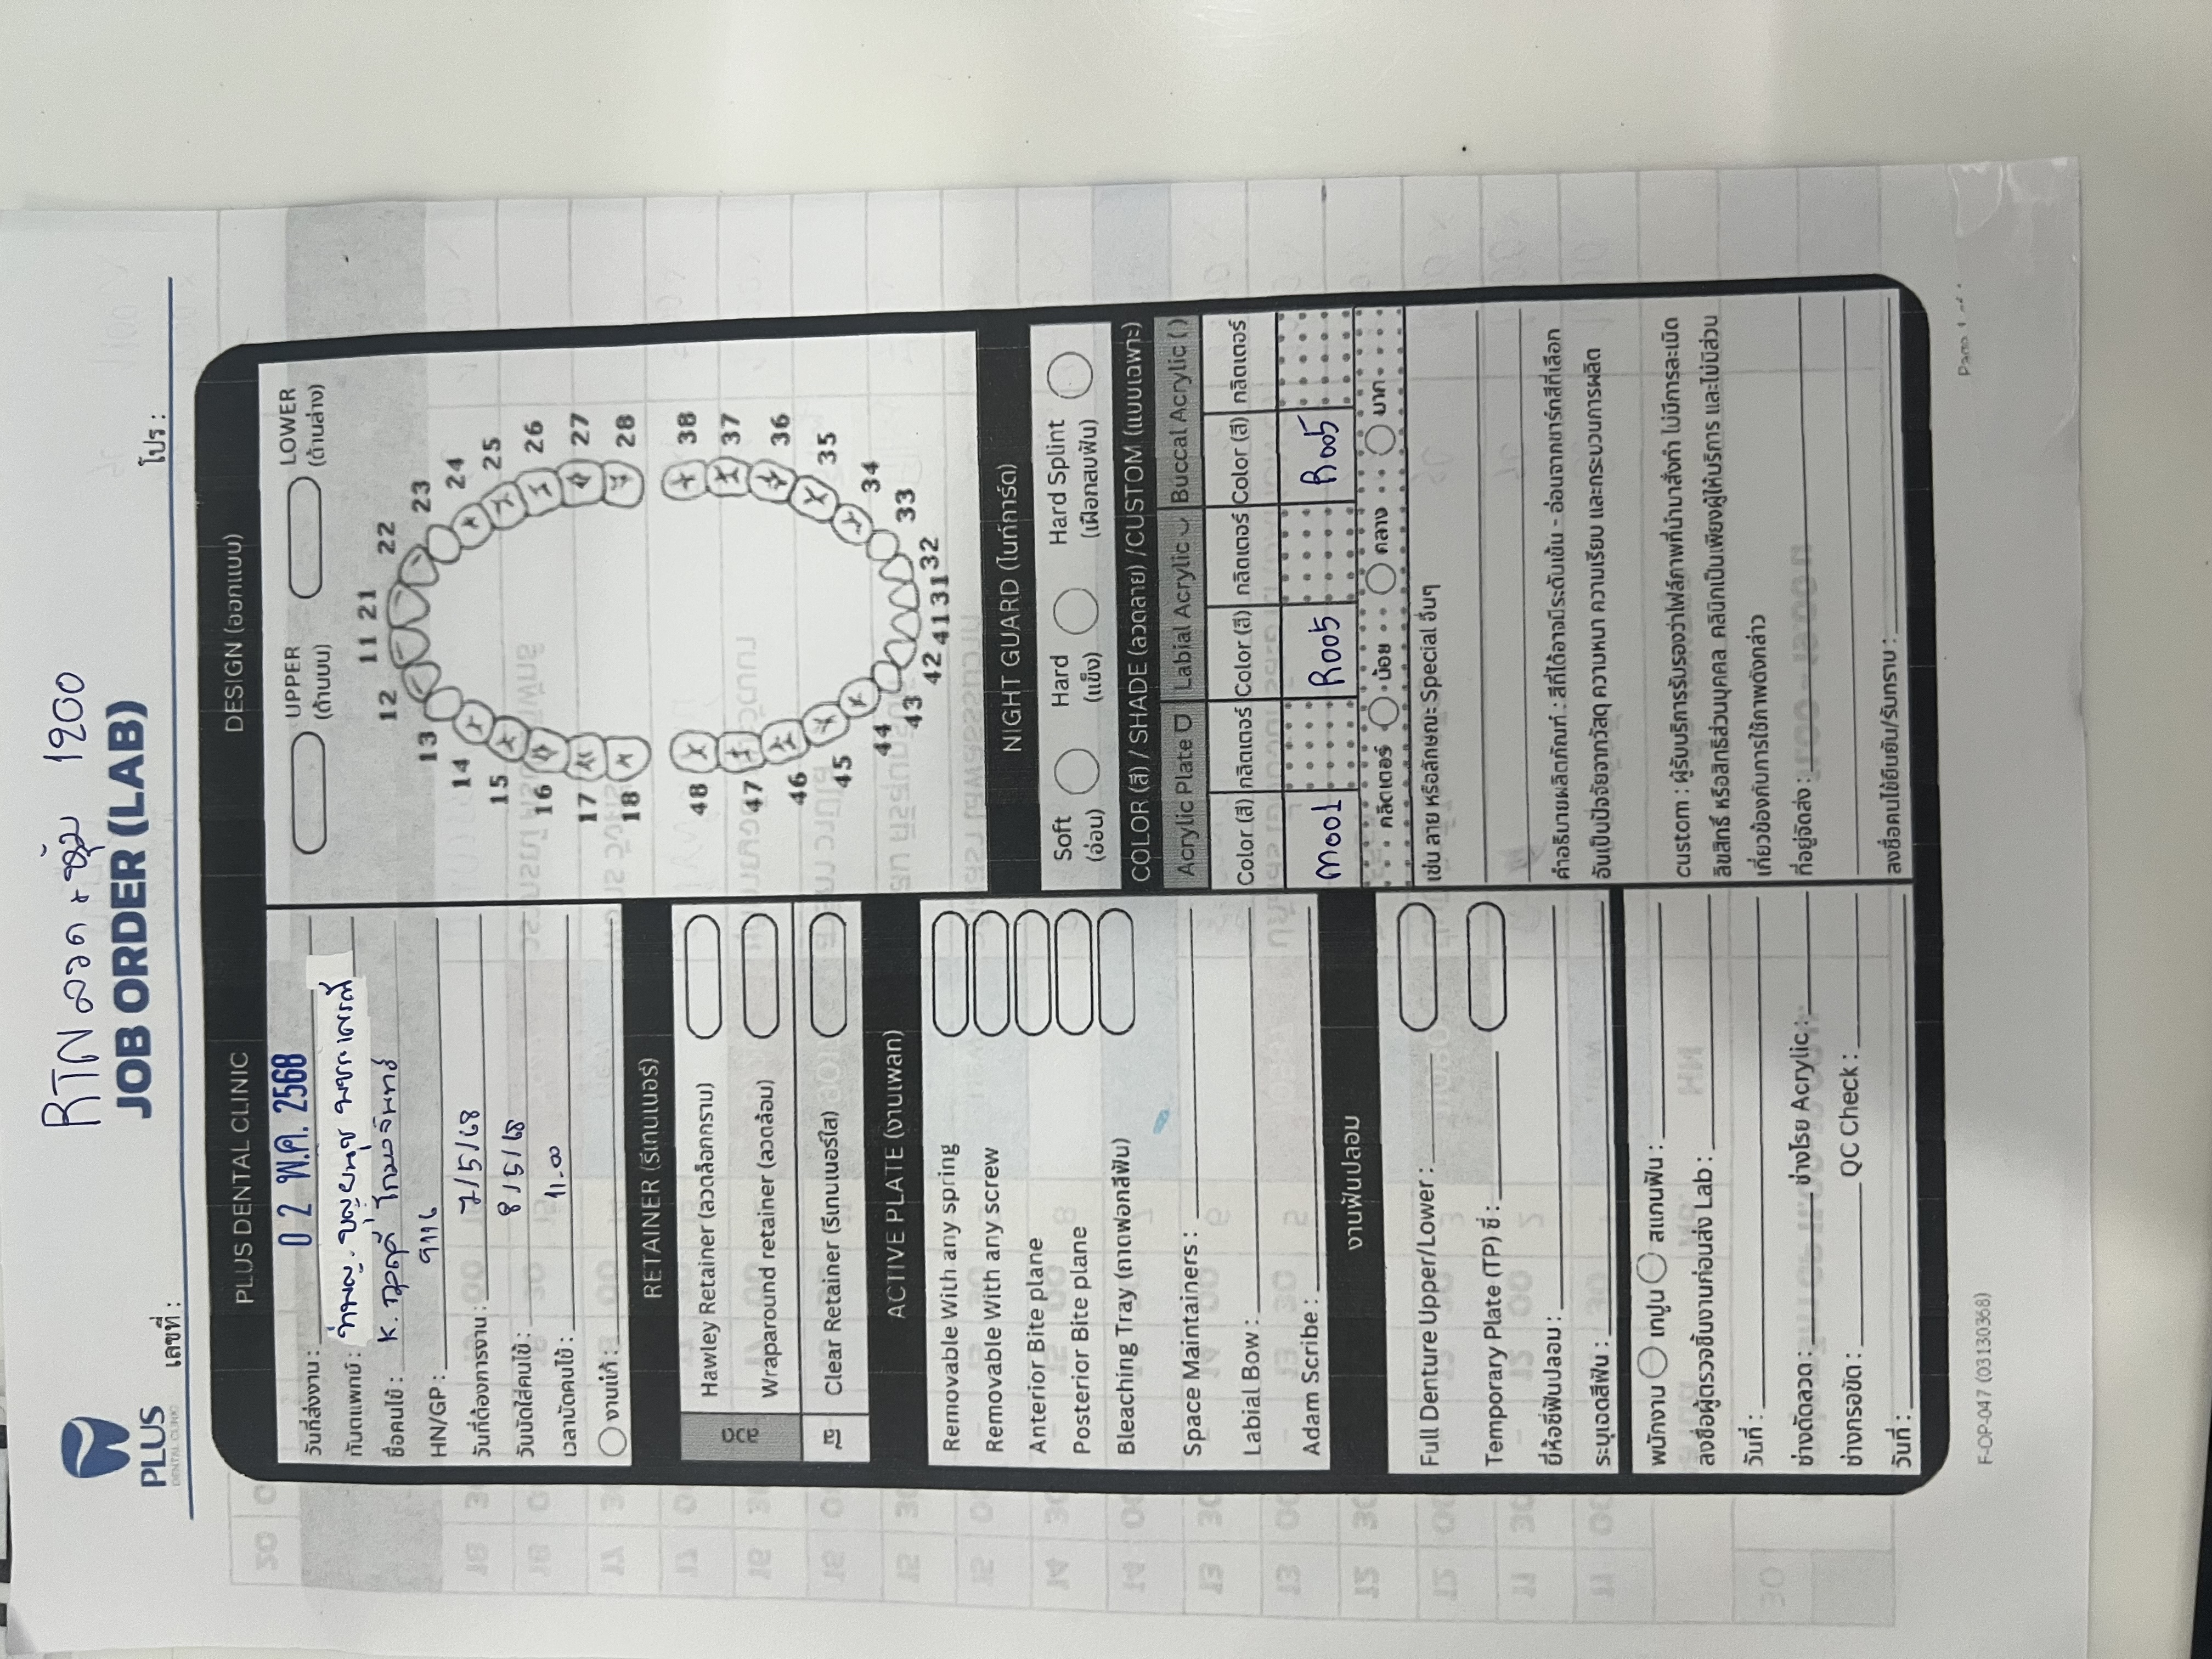 RTN ลวด + หุ้ม 1200
JOB ORDER (LAB)
PLUS
DENTAL CLINIC
เลขที่ :
โปร :
PLUS DENTAL CLINIC
วันที่ส่งงาน : 02 พ.ค. 2568
ทันตแพทย์ : ทพญ. บุญยนุช
ชื่อคนไข้ : K.
HN/GP : 9116
วันที่ต้องการงาน : 7/5/68
วันนัดใส่คนไข้ : 8/5/68
เวลานัดคนไข้ : 11.00
งานแก้ :
RETAINER (รีเทนเนอร์)
ลวด
Hawley Retainer (ลวดล็อกกราม)
Wraparound retainer (ลวดล้อม)
ใส
Clear Retainer (รีเทนเนอร์ใส)
ACTIVE PLATE (งานเพลท)
Removable With any spring
Removable With any screw
Anterior Bite plane
Posterior Bite plane
Bleaching Tray (ถาดฟอกสีฟัน)
Space Maintainers :
Labial Bow :
Adam Scribe :
งานฟันปลอม
Full Denture Upper/Lower :
Temporary Plate (TP) ซี่ :
ยี่ห้อซี่ฟันปลอม :
ระบุเฉดสีฟัน :
พนักงาน เทปูน สแกนฟัน :
ลงชื่อผู้ตรวจชิ้นงานก่อนส่ง Lab :
วันที่ :
ช่างดัดลวด : ช่างโรย Acrylic :
ช่างกรอขัด : QC Check :
วันที่ :
DESIGN (ออกแบบ)
UPPER (ด้านบน)
LOWER (ด้านล่าง)
11 21
12 22
13 23
14 24
15 25
16 26
17 27
18 28
48 38
47 37
46 36
45 35
44 34
43 33
42 41 31 32
NIGHT GUARD (ไนท์การ์ด)
Soft (อ่อน)
Hard (แข็ง)
Hard Splint (เฝือกสบฟัน)
COLOR (สี) / SHADE (ลวดลาย) /CUSTOM (แบบเฉพาะ)
Acrylic Plate Labial Acrylic Buccal Acrylic ( )
Color (สี) กลิตเตอร์ Color (สี) กลิตเตอร์ Color (สี) กลิตเตอร์
M001 R005 R005
กลิตเตอร์ น้อย กลาง มาก
เช่น ลาย หรือลักษณะ Special อื่นๆ
คำอธิบายผลิตภัณฑ์ : สีที่ได้อาจมีระดับเข้ม - อ่อนจากชาร์ทสีที่เลือก
อันเป็นปัจจัยจากวัสดุ ความหนา ความเรียบ และกระบวนการผลิต
custom : ผู้รับบริการรับรองว่าไฟล์ภาพที่นำมาสั่งทำ ไม่มีการละเมิด
ลิขสิทธิ์ หรือสิทธิส่วนบุคคล คลินิกเป็นเพียงผู้ให้บริการ และไม่มีส่วน
เกี่ยวข้องกับการใช้ภาพดังกล่าว
ที่อยู่จัดส่ง :
ลงชื่อคนไข้ยืนยัน/รับทราบ :
F-OP-047 (03130368)